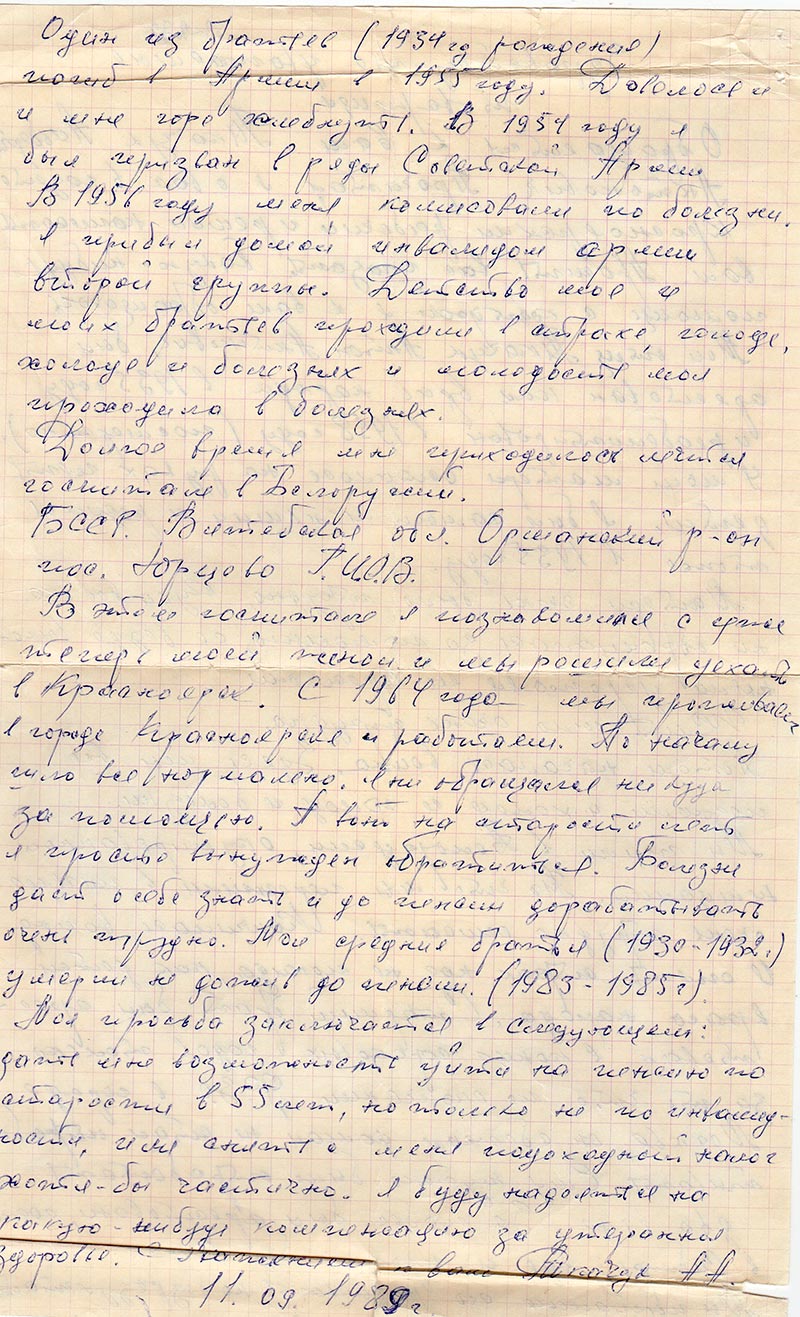 Один из братьев (1934 гд рождения)
погиб в Армии в 1955 году. Довелося и
и мне горе хлебнуть. В 1954 году я
был призван в ряды Советской Армии
В 1956 году меня комисовали по болезни.
я прибыл домой инвалидом армии
второй группы. Детство мое и
моих братьев проходили в страхе, голоде,
холоде и болезнях и молодость моя
проходила в болезнях.
Долгое время мне приходилось лечится
госпитале в Белорусии.
БССР. Витебская обл. Оршанский р-он
пос. Юрцово Г.И.О.В.
В этом госпитале я познакомился с уже
теперь моей женой и мы решили уехать
в Красноярск. С 1964 года мы проживаем
в городе Красноярске и работаем. По началу
шло все нормально. я ни обращался ни куда
за помощью. А вот на старости лет
я просто вынужден обратиться. Болезни
дают о себе знать и до пенсии дорабатывать
очень трудно. Мои средние братья (1930-1932г)
умерли не дожив до пенсии. (1983-1985г)
Моя просьба заключается в следующем:
дать мне возможность уйти на пенсию по
старости в 55 лет, но только не по инвалид-
ности, или снять с меня подоходный налог
хотя-бы частично. я буду надоятся на
какую-нибудь компенсацию за утеранное
здоровье. С к вам А А.
11. 09. 1989 г.